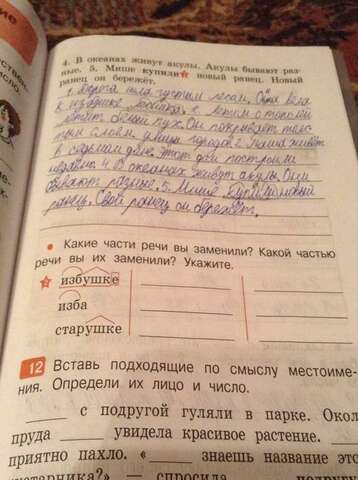 4. В океанах живут акулы. Акулы бывают раз-
ные. 5. Мише купили новый ранец. Новый
ранец он бережёт.
1. Дорога шла густым лесом. Она вела
к избушке лесника. 2. Летом с тополей
летит белый пух. Он покрывает
слоем улицы города. 3. Маша живёт
в седьмом доме. Этот дом построили
недавно. 4. В океанах живут акулы. Они
бывают разные. 5. Мише купили новый
ранец. Свой ранец он бережёт.
• Какие части речи вы заменили? Какой частью
речи вы их заменили? Укажите.
избушке
изба
старушке
12 Вставь подходящие по смыслу местоиме-
ния. Определи их лицо и число.
с подругой гуляли в парке. Окол
пруда увидела красивое растение.
приятно пахло. « знаешь название это
кустарника?» — спросила подруг